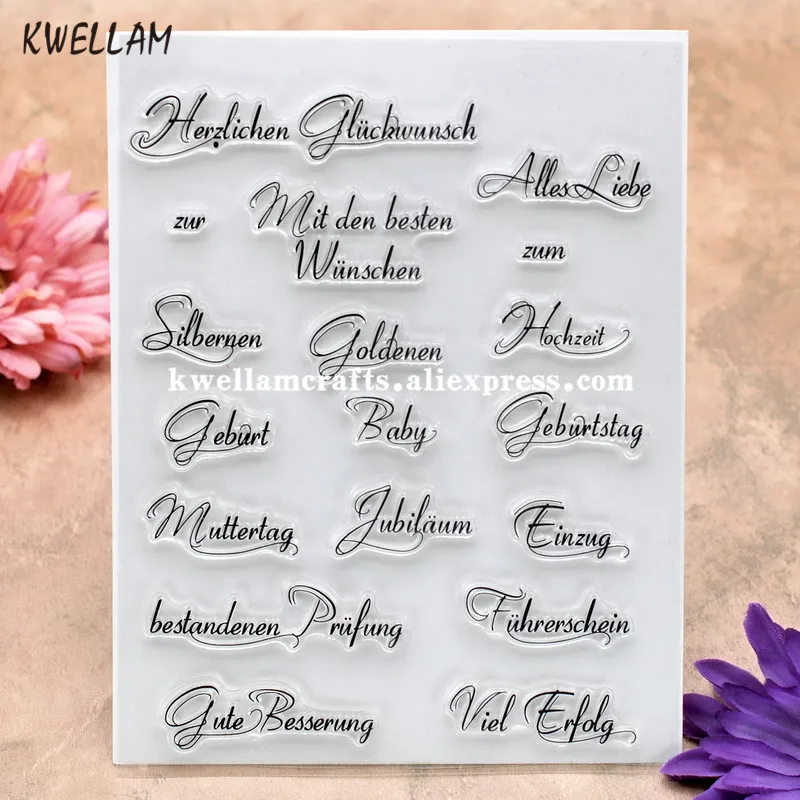 KWELLAM
Herzlichen Glückwunsch
Alles Liebe
zur
Mit den besten
Wünschen
zum
Silbernen
Goldenen
Hochzeit
kwellamcrafts.aliexpress.com
Geburt
Baby
Geburtstag
Muttertag
Jubiläum
Einzug
bestandenen Prüfung
Führerschein
Gute Besserung
Viel Erfolg